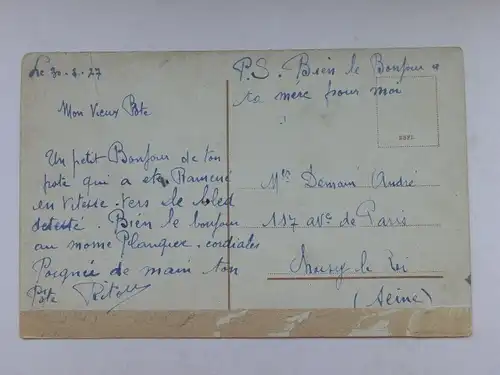 Le 30-8-27
Mon Vieux Pote
Un petit Bonjour de ton
pote qui a eté Ramené
en vitesse vers le bled
detesté. Bien le bonjour
au mome Planquez. cordiales
Poignée de main ton
Pote
P.S. Bien le Bonjour a
ta mère pour moi
Mr Demani André
117 ave de Paris
Choisy le Roi
(Seine)